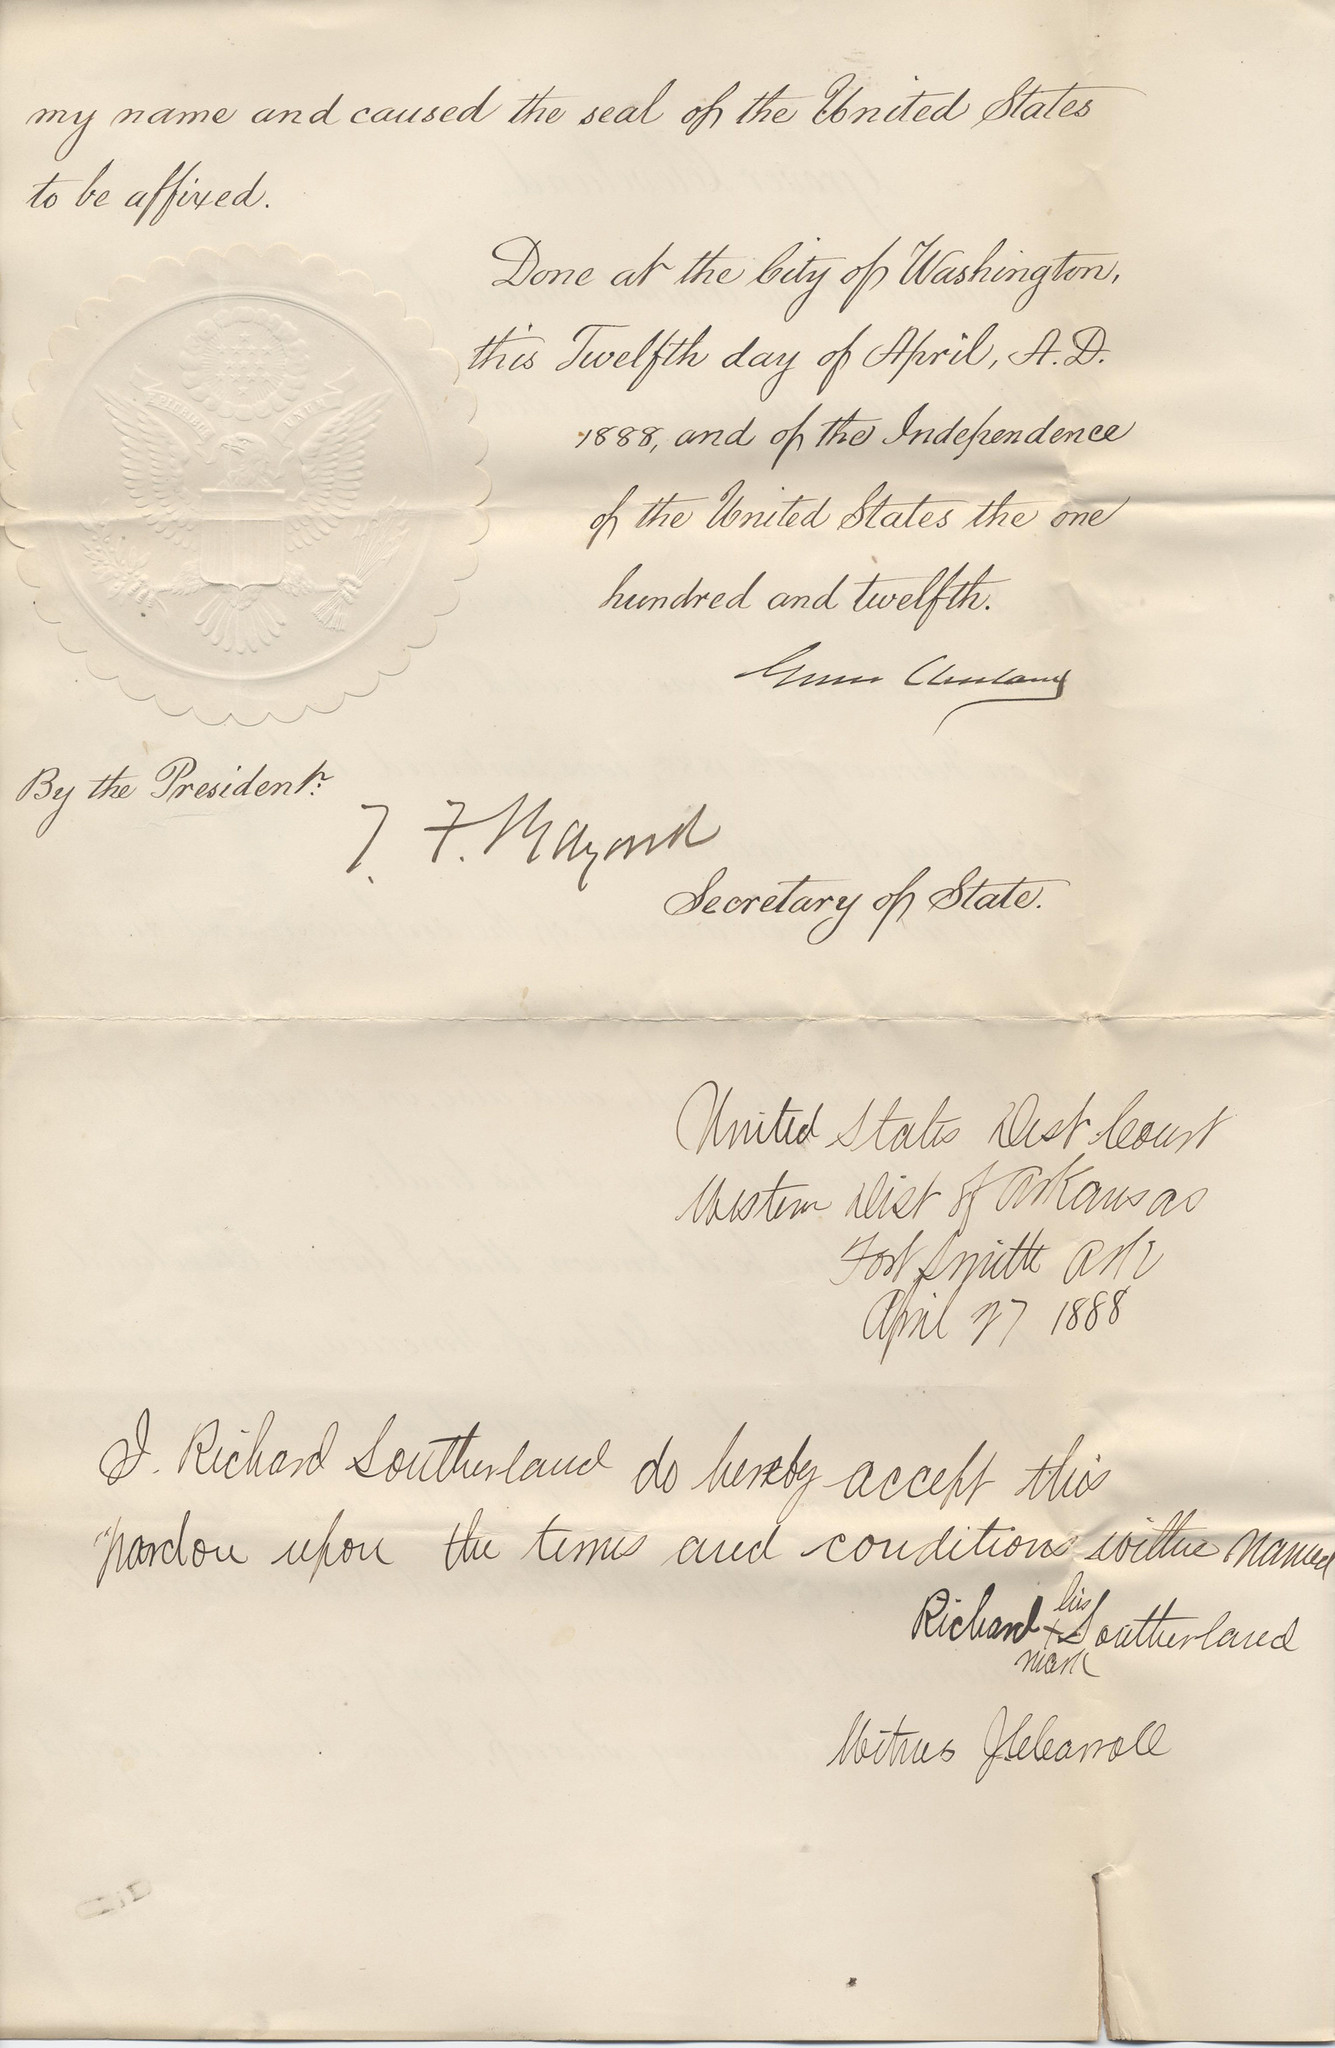 my name and caused the seal of the United States
to be affixed.
Done at the City of Washington,
this Twelfth day of April, A.D.
1888, and of the Independence
of the United States the one
hundred and twelfth.
Grover Cleveland
By the President:
T. F. Bayard
Secretary of State.
United States Dist Court
Western Dist of Arkansas
Fort Smith Ark
April 27 1888
I. Richard Southerland do hereby accept this
pardon upon the terms and conditions within named
his
Richard x Southerland
mark
Witness J Carroll